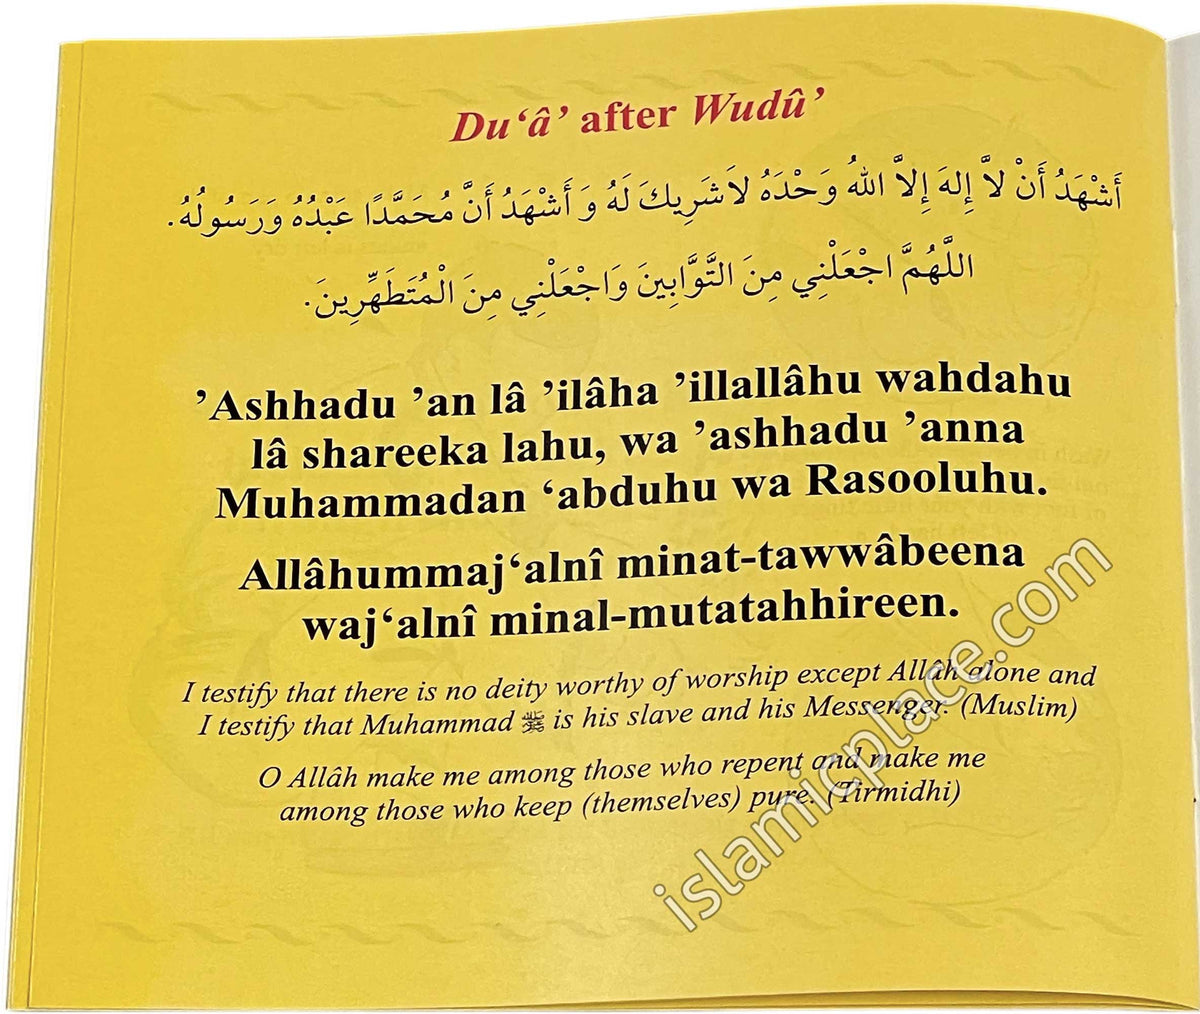 Du‘â’ after Wudû’
أَشْهَدُ أَنْ لاَّ إِلهَ إِلاَّ اللهُ وَحْدَهُ لاَشَرِيكَ لَهُ وَ أَشْهَدُ أَنَّ مُحَمَّدًا عَبْدُهُ وَرَسُولُهُ.
اللَّهُمَّ اجْعَلْنِي مِنَ التَّوَّابِينَ وَاجْعَلْنِي مِنَ الْمُتَطَهِّرِينَ.
’Ashhadu ’an lâ ’ilâha ’illallâhu wahdahu
lâ shareeka lahu, wa ’ashhadu ’anna
Muhammadan ‘abduhu wa Rasooluhu.
Allâhummaj‘alnî minat-tawwâbeena
waj‘alnî minal-mutatahhireen.
I testify that there is no deity worthy of worship except Allâh alone and
I testify that Muhammad ﷺ is his slave and his Messenger. (Muslim)
O Allâh make me among those who repent and make me
among those who keep (themselves) pure. (Tirmidhi)
islamicplace.com